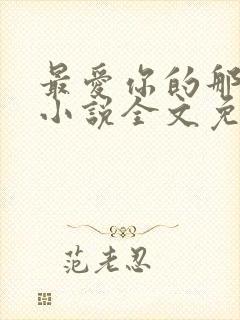 最爱你的那
小说全文免
范老忍